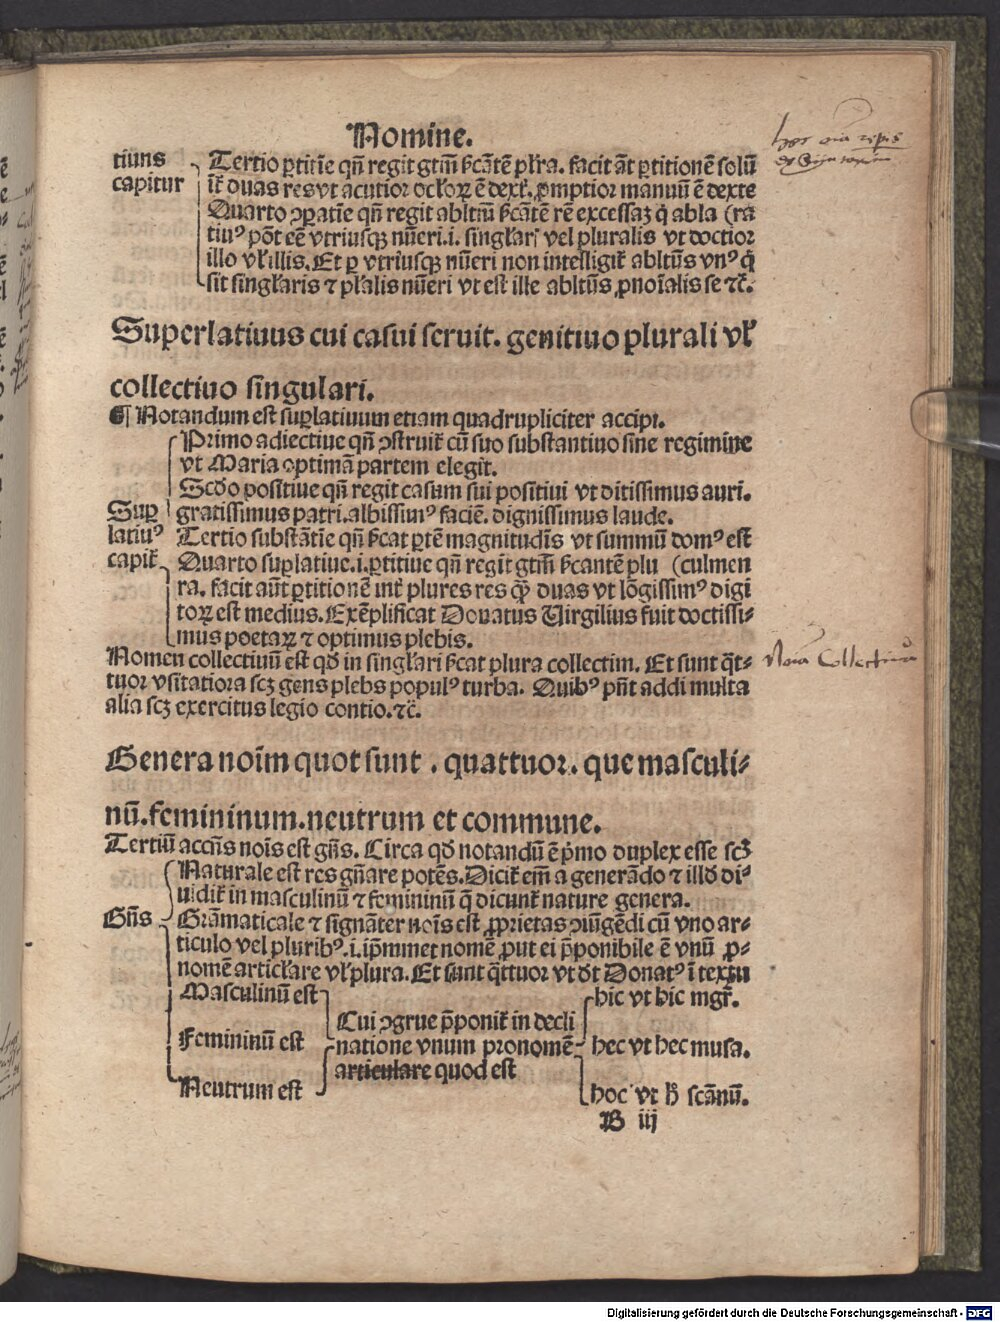 Nomine.
tiuus Tertio ꝑtitiẽ qñ regit gtm̃ ſcãtẽ pl̃ra. facit ãt ꝑtitionẽ ſolũ
capitur duas res vt acutior ocl'oꝝ ẽ dext̃. ꝓmptior manuũ ẽ dexte
Quarto ↄꝑatiẽ qñ regit abltm̃ ſcãtẽ rẽ exceſſaꝫ q̃ abla (ra
tiuꝰ põt eẽ vtriuſqꝫ nũeri .i. ſingl'ari vel pluralis vt doctior
illo vl' illis. Et ꝑ vtriuſqꝫ nũeri non intelligit̃ abltũs vnꝰ q̃
ſit ſingl'aris ⁊ pl'alis nũeri vt eſt ille abltũs ꝓnoĩalis ſe ⁊c̃.
Superlatiuus cui caſui ſeruit. genitiuo plurali vl'
collectiuo ſingulari.
¶ Notandum eſt ſuꝑlatiuum etiam quadrupliciter accipi.
Primo adiectiue qñ ↄſtruit̃ cũ ſuo ſubſtantiuo ſine regimine
vt Maria optimã partem elegit.
Scďo poſitiue qñ regit caſum ſui poſitiui vt ditiſſimus auri.
Suꝑ gratiſſimus patri. albiſſimꝰ faciẽ. digniſſimus laude.
latiuꝰ Tertio ſubſtãtiẽ qñ ſcat ꝑtẽ magnitudĩs vt ſummũ domꝰ eſt
capit̃ Quarto ſuꝑlatiue .i. ꝑtitiue qñ regit gtm̃ ſcantẽ plu (culmen
ra. facit aũt ꝑtitionẽ int̃ plures res qꝫ duas vt lõgiſſimꝰ digi
toꝝ eſt medius. Exẽplificat Donatus Virgilius fuit doctiſſi-
mus poetaꝝ ⁊ optimus plebis.
Nomen collectiuũ eſt qď in ſingl'ari ſcat plura collectim. Et ſunt q̃t-
tuor vſitatiora ſcꝫ gens plebs populꝰ turba. Quibꝰ pñt addi multa
alia ſcꝫ exercitus legio contio. ⁊c̃.
Nomen Collectiuũ
Genera noĩm quot ſunt . quattuor. que maſculi-
nũ. femininum. neutrum et commune.
Tertiũ accñs noĩs eſt gñs. Circa qď notandũ ẽ p̃mo duplex eſſe ſcꝫ
Naturale eſt res gñare potẽs. Dicit̃ em̃ a generãdo ⁊ illď di-
uidit̃ in maſculinũ ⁊ femininũ q̃ dicunt̃ nature genera.
Gñs Grãmaticale ⁊ ſignãter noĩs eſt ꝓprietas ↄiũgẽdi cũ vno ar-
ticulo vel pluribꝰ .i. ip̃mmet nomẽ ꝓut ei p̃ponibile ẽ vnũ ꝓ-
nomẽ articl'are vl' plura. Et ſunt q̃ttuor vt dt Donatꝰ ĩ textu
Maſculinũ eſt
Femininũ eſt
Neutrum eſt
Cui ↄgrue p̃ponit̃ in decli
natione vnum pronomẽ
articulare quod eſt
hic vt hic mgr̃.
hec vt hec muſa.
hoc vt h̃ ſcãnũ.
B iij
Digitalisierung gefördert durch die Deutsche Forschungsgemeinschaft - DFG